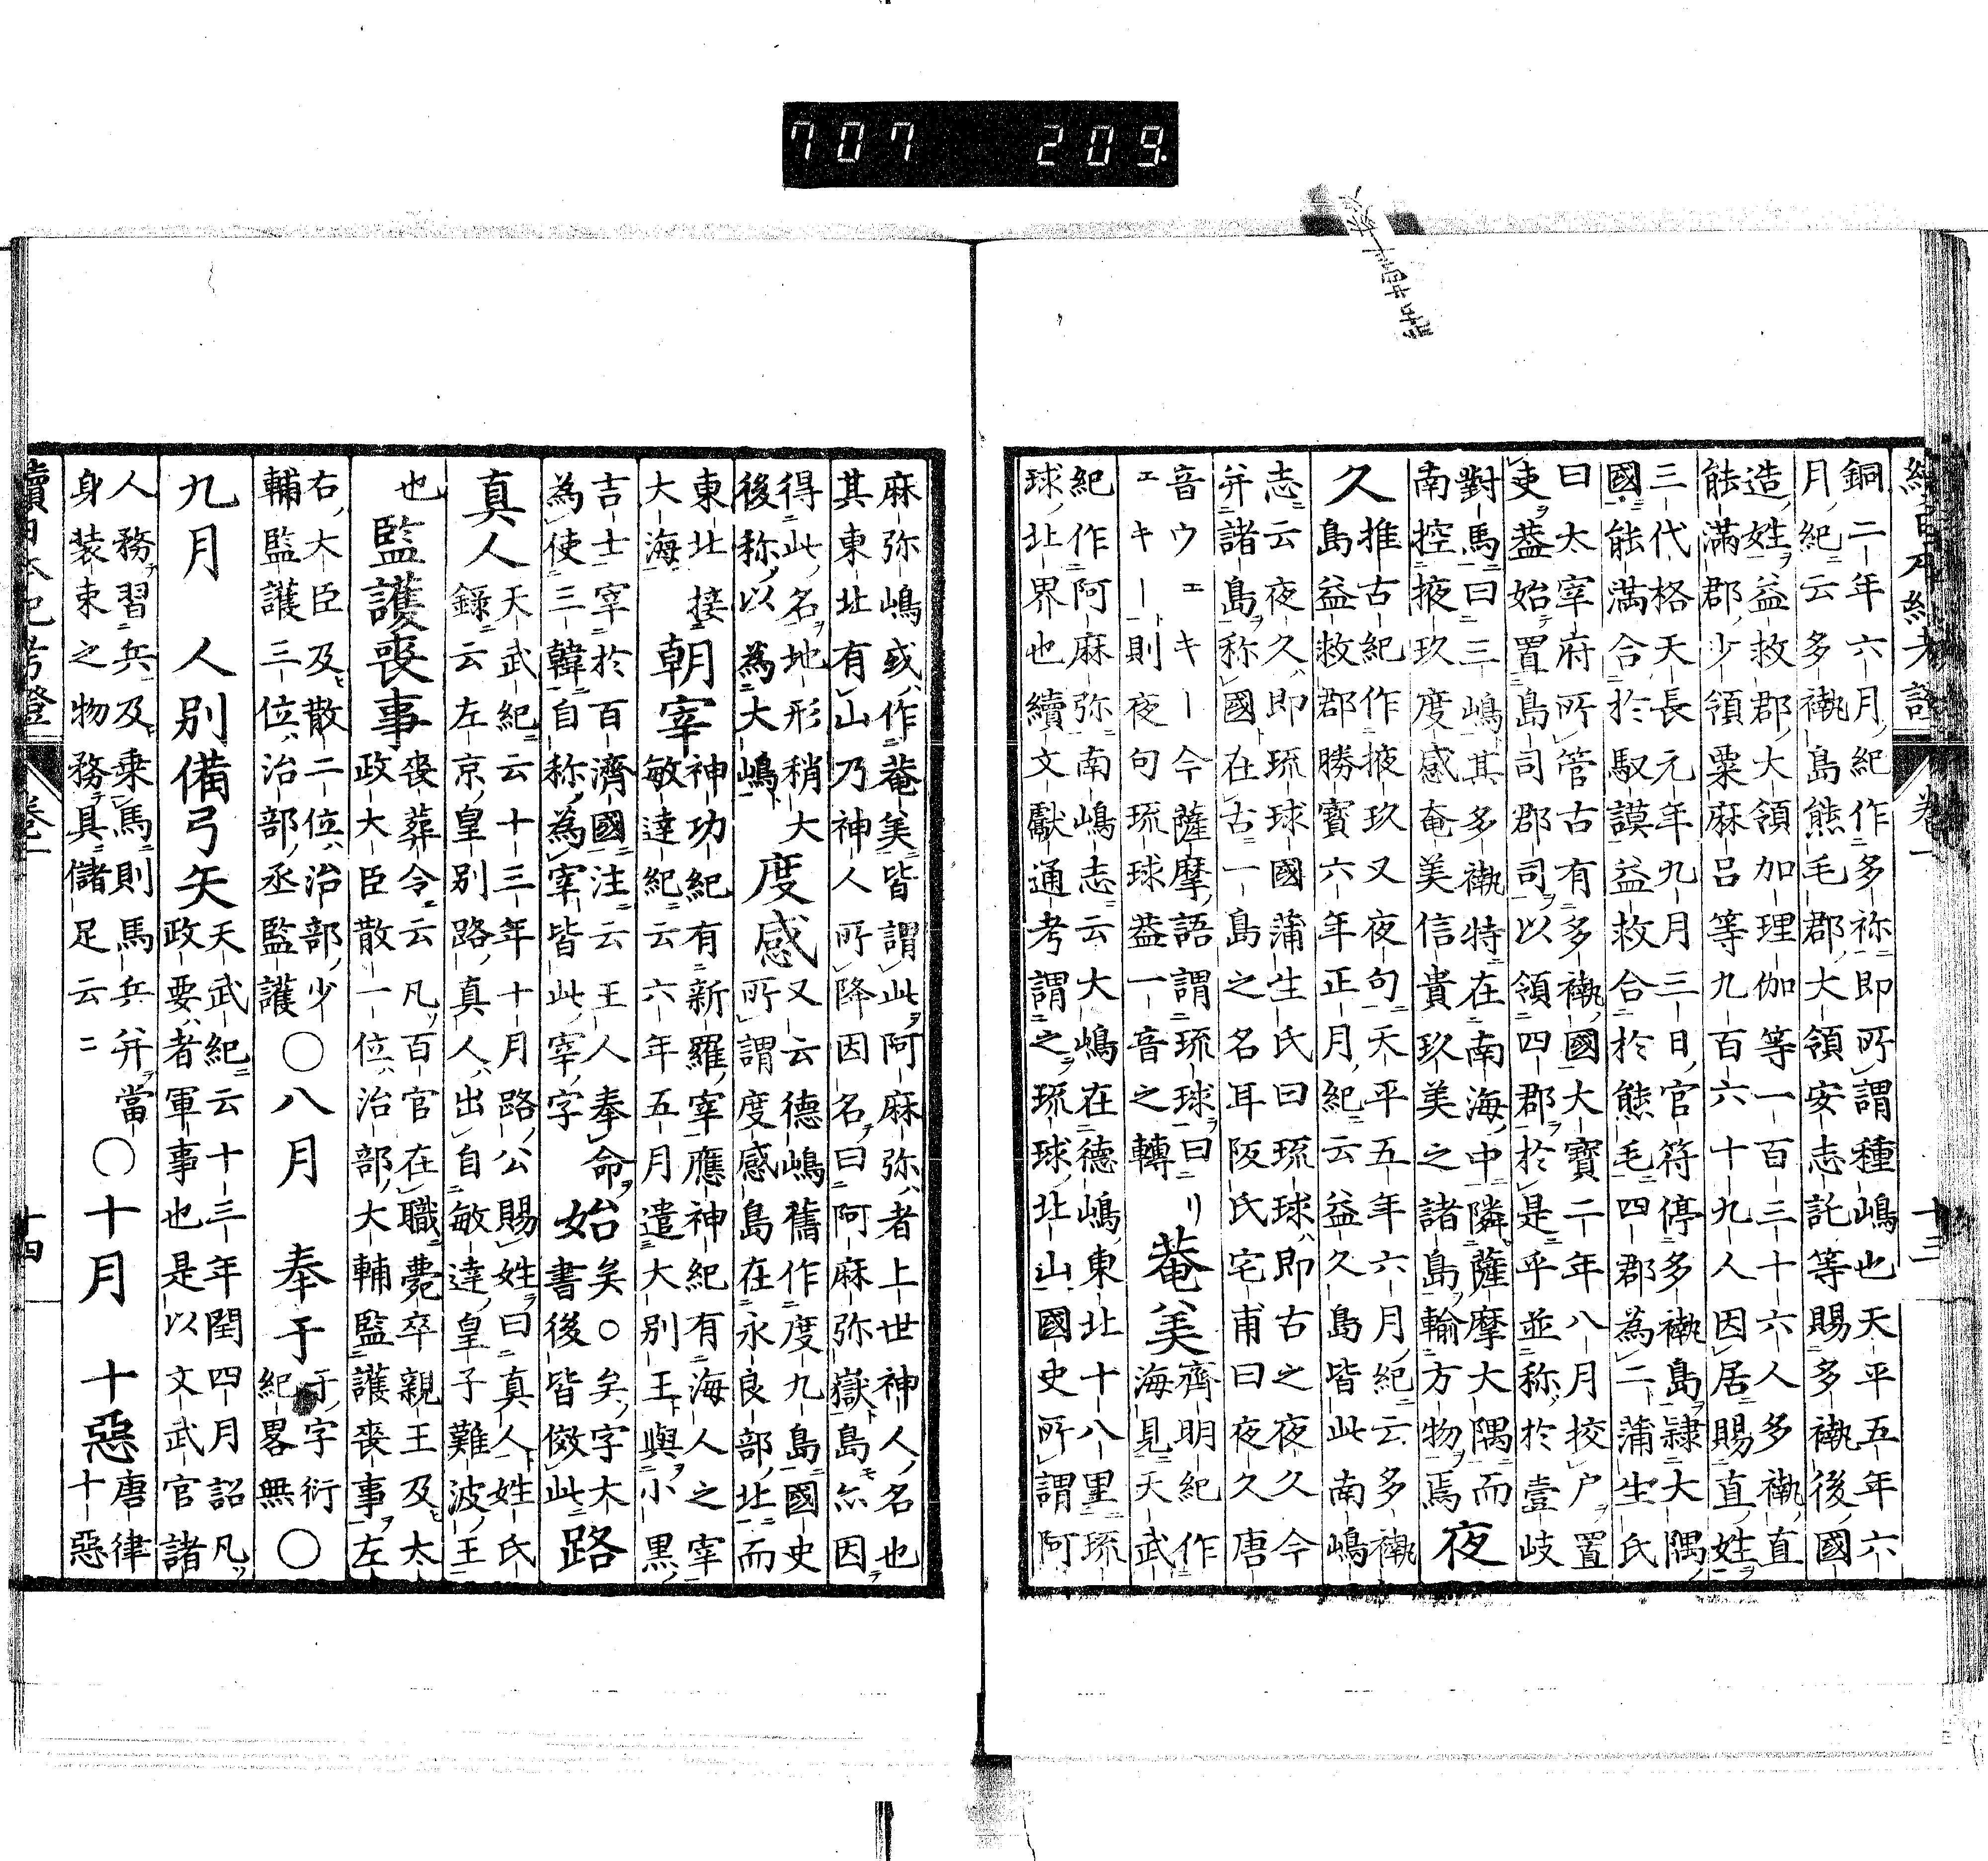 707 209.
續日本紀考證 卷一 十三
銅二年六月紀作多祢即所謂種嶋也天平五年六
月紀云多褹島熊毛郡大領安志託等賜多褹後國
造姓益救郡大領加理伽等一百三十六人多褹直
能滿郡少領粟麻呂等九百六十九人因居賜直姓
三代格天長元年九月三日官符停多褹島隷大隅
國能滿合於馭謨益救合於熊毛四郡為二蒲生氏
曰太宰府所管古有多褹國大寶二年八月挍戸置
吏蓋始置島司郡司以領四郡於是乎並称於壹岐
對馬曰三嶋其多褹特在南海中隣薩摩大隅而
南控掖玖度感奄美信貴玖美之諸島輸方物焉 夜
久 推古紀作掖玖又夜句天平五年六月紀云多褹
島益救郡勝寶六年正月紀云益久島皆此南嶋
志云夜久即琉球國蒲生氏曰琉球即古之夜久今
并諸島称國在古一島之名耳阪氏宅甫曰夜久唐
音ウエキー今薩摩語謂琉球曰リ
エキー則夜句琉球蓋一音之轉 菴美 齊明紀作
海見天武
紀作阿麻弥南嶋志云大嶋在德嶋東北十八里琉
球北界也續文獻通考謂之琉球北山國史所謂阿
麻弥嶋或作菴美皆謂此阿麻弥者上世神人名也
其東北有山乃神人所降因名曰阿麻弥嶽島亦因
得此名地形稍大
後称以為大嶋 度感 又云德嶋舊作度九島國史
所謂度感島在永良部北而
東北接
大海 朝宰 神功紀有新羅宰應神紀有海人之宰
敏達紀云六年五月遣大別王與小黒
吉士宰於百濟國注云王人奉命
為使三韓自称為宰皆此宰字 始矣○矣字太
書後皆傚此 路
真人 天武紀云十三年十月路公賜姓曰真人姓氏
錄云左京皇別路真人出自敏達皇子難波王
也 監護喪事 喪葬令云凡百官在職薨卒親王及太
政大臣散一位治部大輔監護喪事左
右大臣及散二位治部少
輔監護三位治部丞監護 ○八月 奉于 于字衍
紀畧無 ○
九月 人別備弓矢 天武紀云十三年閏四月詔凡
政要者軍事也是以文武官諸
人務習兵及乗馬則馬兵并當
身装束之物務具儲足云二 ○十月 十惡 唐律
十惡
續日本紀考證 卷一 十四